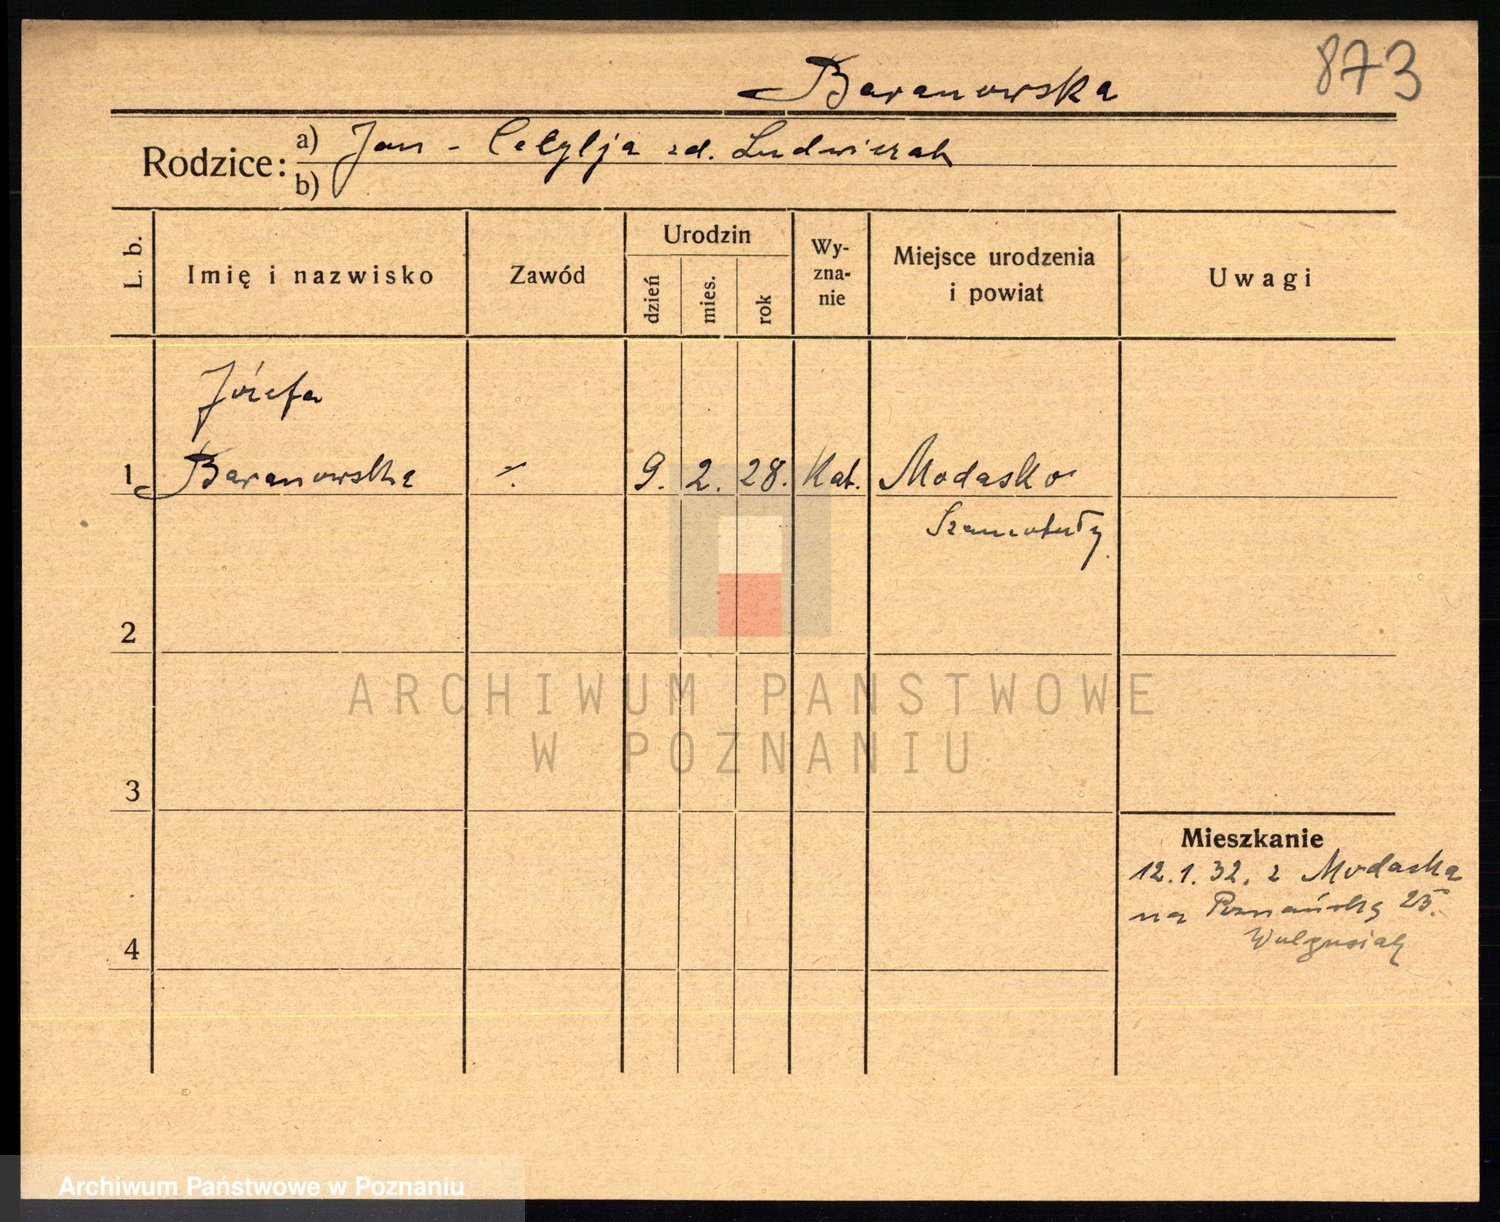 873
Baranowska
Rodzice: a) Jan - Cecylja zd. Ludwiczak
b)
L. b.
Imię i nazwisko
Zawód
Urodzin
dzień
mies.
rok
Wy-
zna-
nie
Miejsce urodzenia
i powiat
Uwagi
Józefa
1 Baranowska -/. 9. 2. 28. Kat. Modasko
Szamotuły
2
ARCHIWUM PAŃSTWOWE
W POZNANIU
3
Mieszkanie
12.1.32. z Modaska
na Poznańską 25.
4
Archiwum Państwowe w Poznaniu